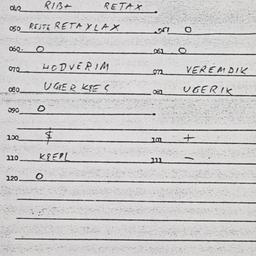 040 RIBA RETAX
050 RETAYLAX 051 0
060 0 061 0
070 HODVERIM 071 VEREMDIK
080 UGER 081 UGERIK
090 0
100 $ 101 +
110 111 -
120 0